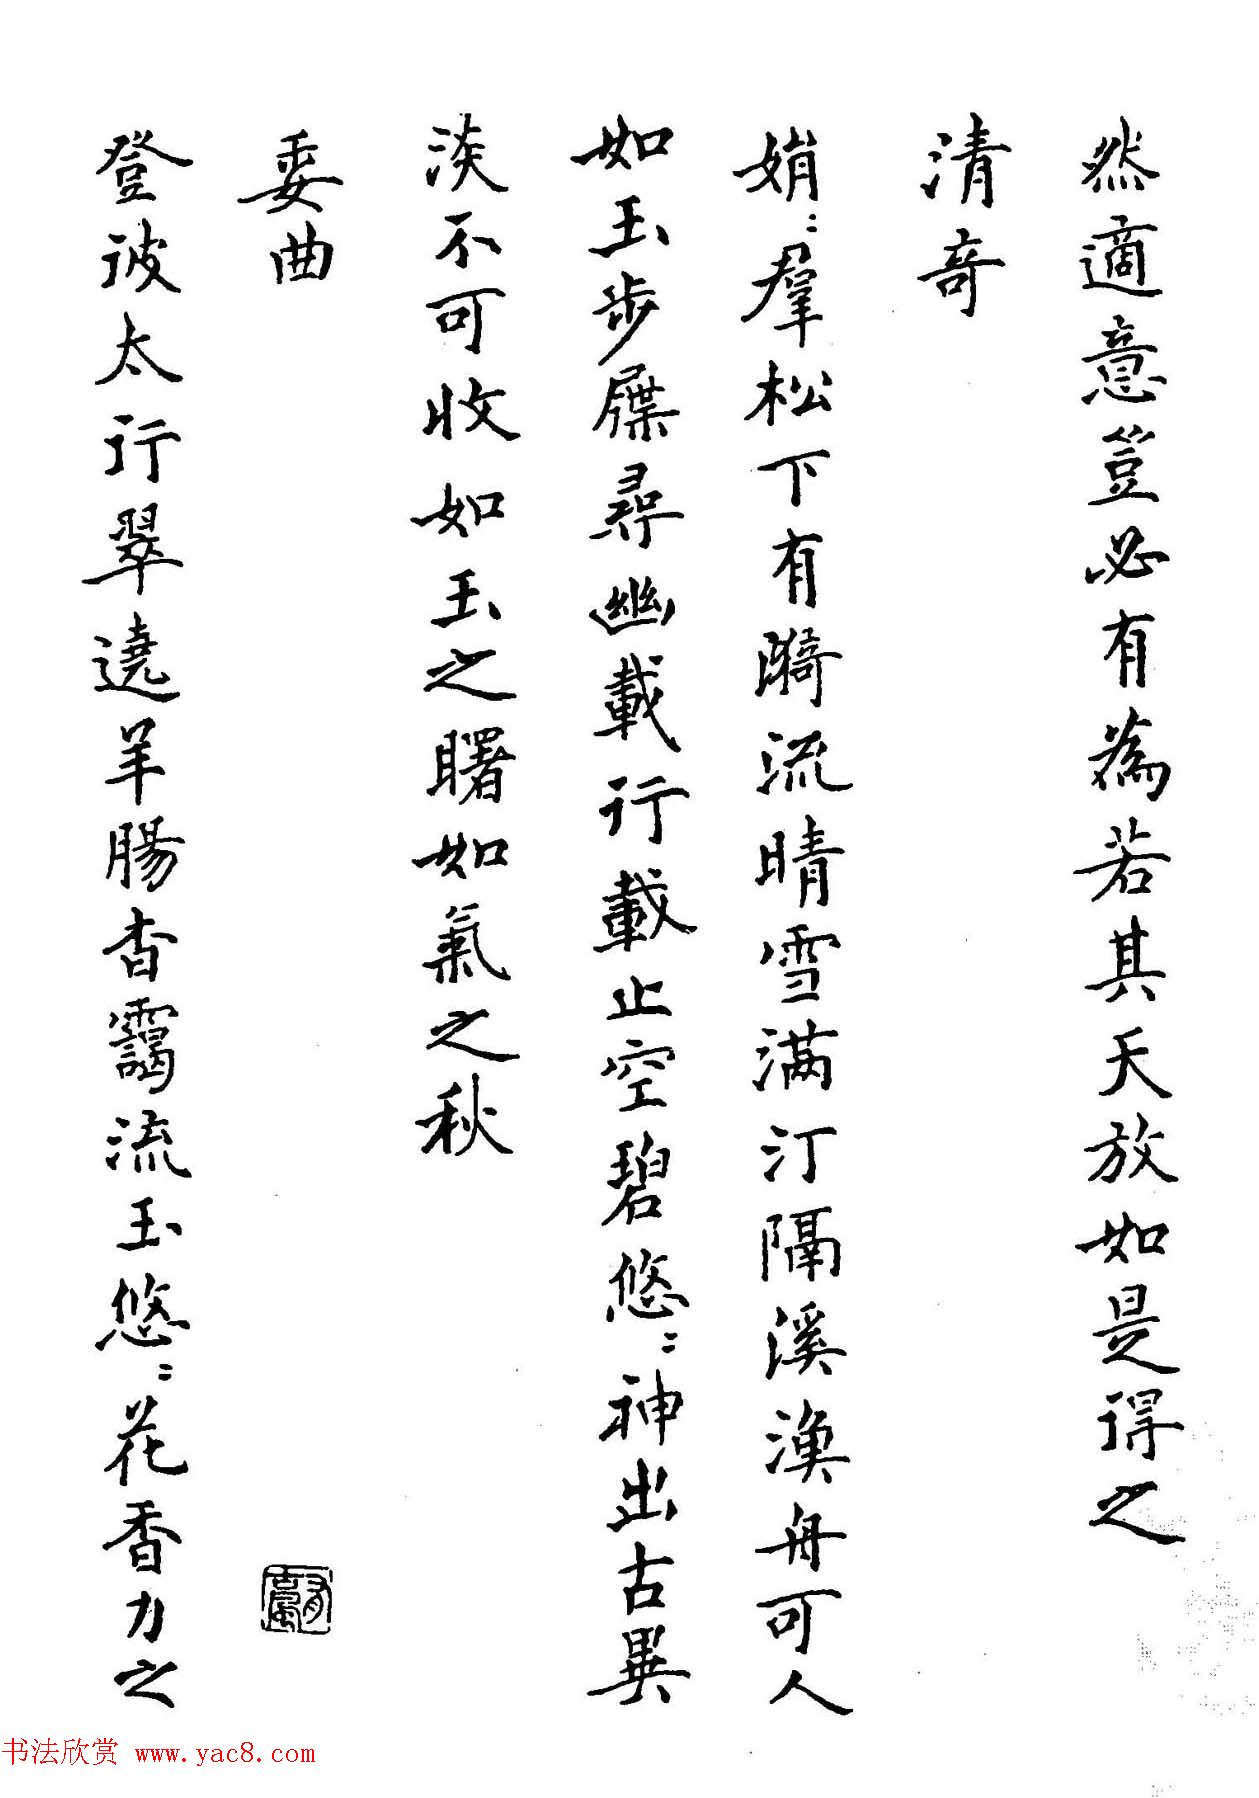 然適意豈必有為若其天放如是得之
清奇
娟〻羣松下有漪流晴雪滿汀隔溪漁舟可人
如玉步屧尋幽載行載止空碧悠〻神出古異
淡不可收如玉之曙如氣之秋
委曲
登彼太行翠遶羊腸杳靄流玉悠〻花香力之
书法欣赏 www.yac8.com